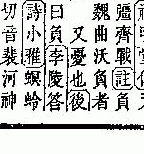 疆齊戰註負
魏曲沃負者
又憂也後
曰負李陵答
詩小雅螟蛉
切音裴河神